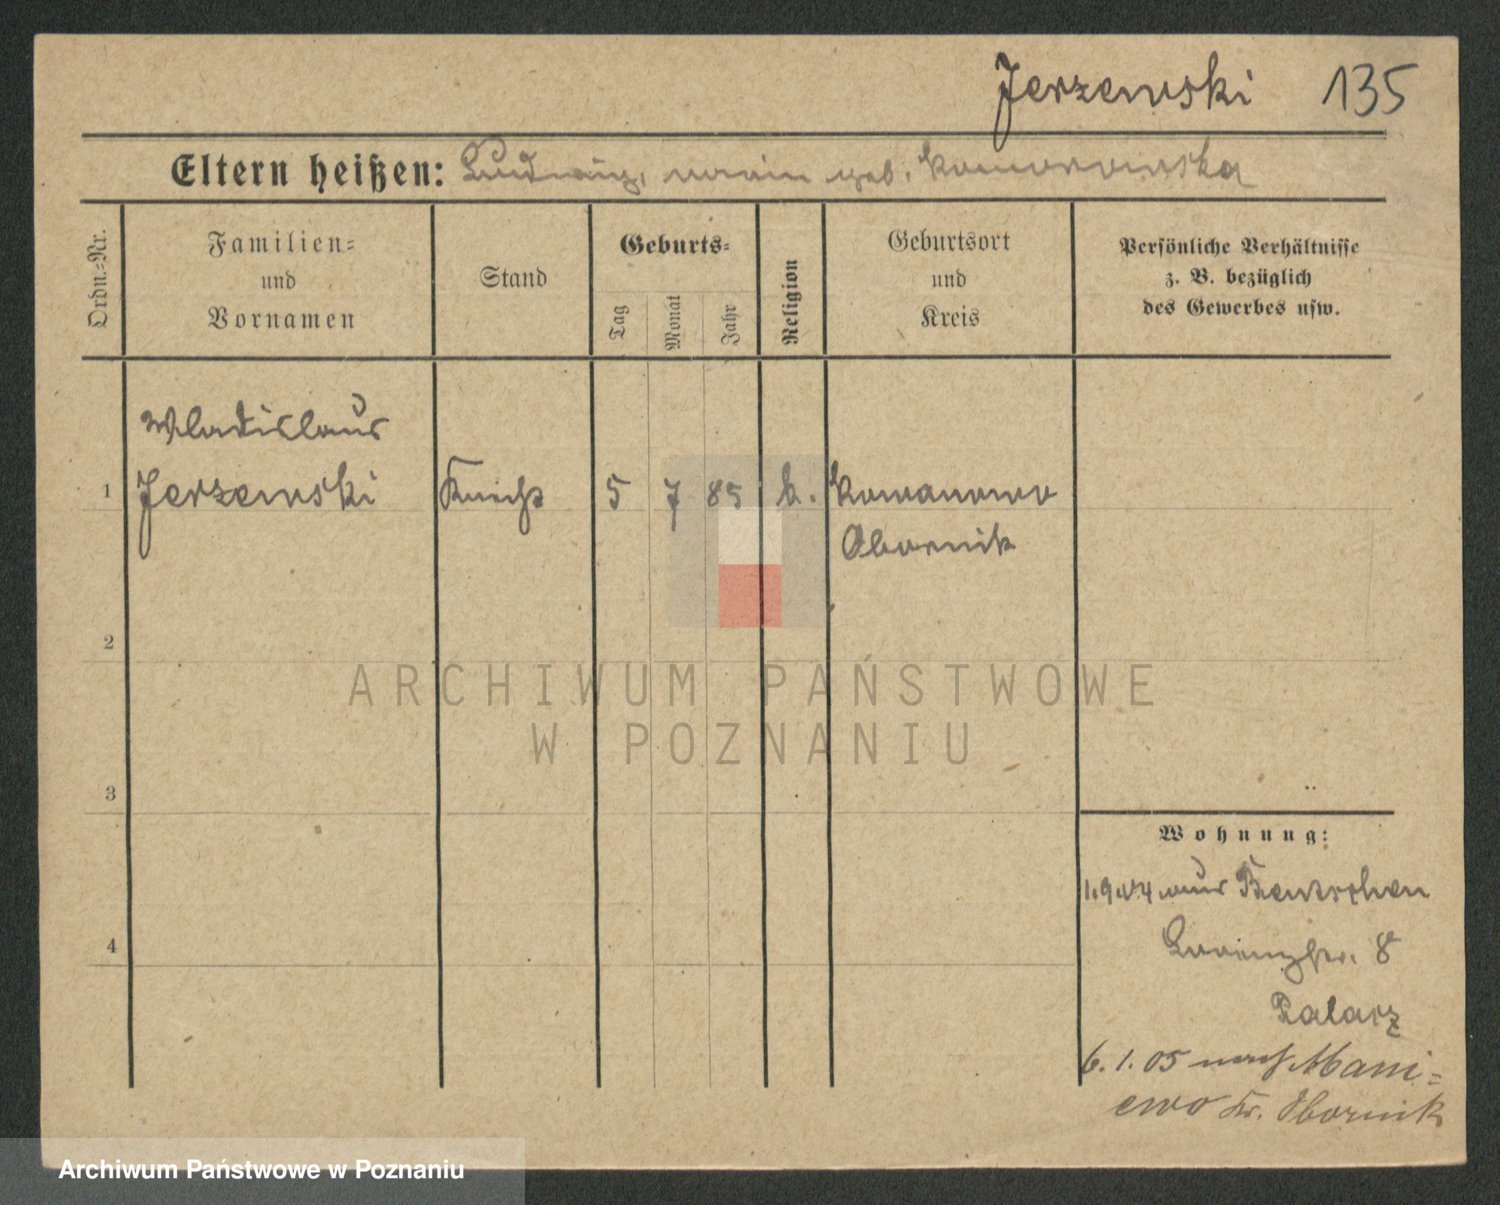 Jerzewski 135
Eltern heißen: Ludwig, geb. Komorowska
Ordn.=Nr.
Familien=
und
Vornamen
Stand
Geburts=
Tag
Monat
Jahr
Religion
Geburtsort
und
Kreis
Persönliche Verhältnisse
z. B. bezüglich
des Gewerbes usw.
Wladislaus
1 Jerzewski Knecht 5 7 85 k. Kowanowo
Obornik
2
3
4
Wohnung:
1.9.04 aus Bentschen
8
Palacz
6.1.05 nach Mani=
ewo Kr. Obornik
ARCHIWUM PAŃSTWOWE
W POZNANIU
Archiwum Państwowe w Poznaniu